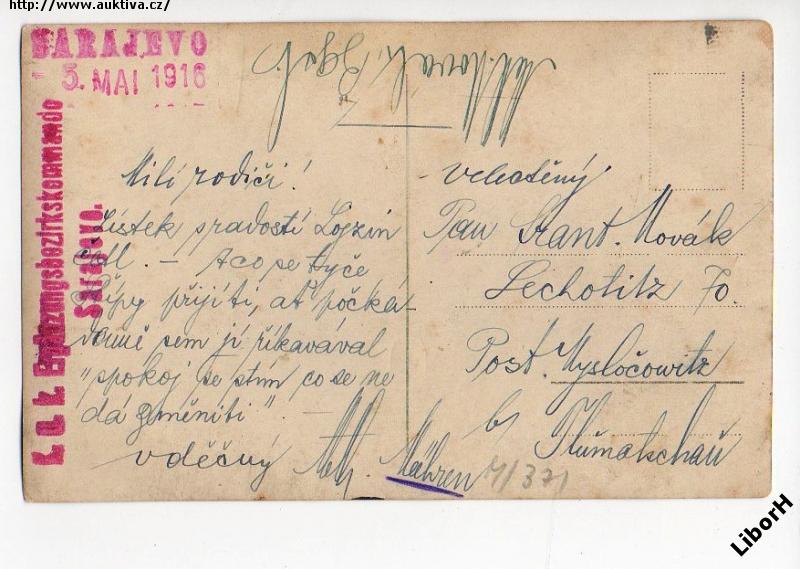 http://www.auktiva.cz/
SARAJEVO
5. MAI 1916
K. u. k. Ergänzungsbezirkskommando
Sarajevo.
Milí rodiči!
Lístek s radostí Lojzin
četl. – A co se týče
přijíti, ať počká-
sem jí říkavával
"spokoj se s tím co se ne
dá změniti". –
vděčný
Velectěný
Pan Frant. Novák
Lechotitz 70.
Post. Mysločowitz
b/ Tlumatschau
Mähren
LiborH